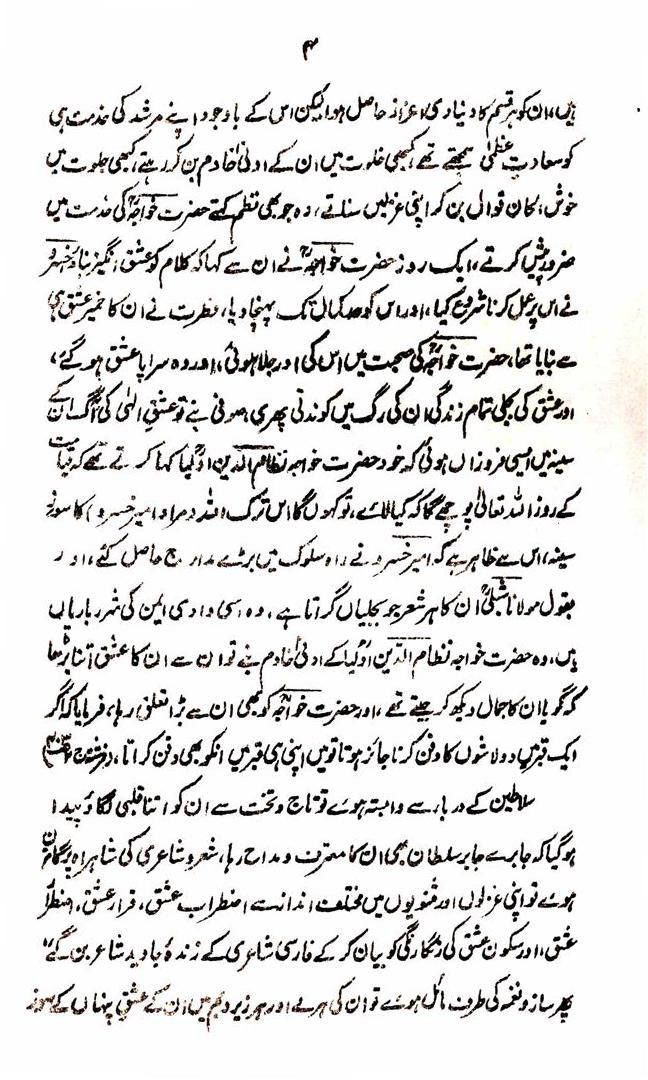 ۴
ہیں، ان کو ہر قسم کا دنیاوی اعزاز حاصل ہوا لیکن اس کے باوجود اپنے مرشد کی خدمت ہی
کو سعادتِ عظمیٰ سمجھتے تھے، کبھی خلوت میں ان کے ادنیٰ خادم بن کر رہتے، کبھی جلوت میں
خوش الحان قوالی بن کر اپنی غزلیں سناتے، وہ جو بھی نظم کہتے حضرت خواجہؒ کی خدمت میں
ضرور پیش کرتے، ایک روز حضرت خواجہؒ نے ان سے کہا کہ کلام کو عشق انگیز بناؤ خسرو
نے اس پر عمل کرنا شروع کیا، اور اس کو حد کمال تک پہنچا دیا، فطرت نے ان کا خمیر عشق ہی
سے بنایا تھا، حضرت خواجہؒ کی صحبت میں اس کی اور جلا ہوئی، اور وہ سراپا عشق ہو گئے،
اور عشق کی بجلی تمام زندگی ان کی رگ میں کوندتی پھری، صوفی بنے تو عشقِ الٰہی کی آگ ان کے
سینہ میں ایسی فروزاں ہوئی کہ خود حضرت خواجہ نظام الدین اولیاؒ کہا کرتے تھے کہ قیامت
کے روز اللہ تعالیٰ پوچھے گا کہ کیا لائے، تو کہوں گا اس ترک اللہ (مراد امیر خسرو) کا سوزِ
سینہ، اس سے ظاہر ہے کہ امیر خسرو نے راہ سلوک میں بڑے مدارج حاصل کئے، اور
بقول مولانا شبلیؒ ان کا ہر شعر جو بجلیاں گراتا ہے، وہ اسی وادی ایمن کی شرر باریاں
ہیں، وہ حضرت خواجہ نظام الدین اولیاؒ کے ادنیٰ خادم بنے تو ان سے ان کا عشق اتنا بڑھا
کہ گویا ان کا جمال دیکھ کر جیتے تھے، اور حضرت خواجہؒ کو بھی ان سے بڑا تعلق رہا، فرمایا کہ اگر
ایک قبر میں دو لاشوں کا دفن کرنا جائز ہوتا تو میں اپنی ہی قبر میں انکو بھی دفن کراتا،
سلاطین کے دربار سے وابستہ ہوئے تو تاج و تخت سے ان کو اتنا قلبی لگاؤ پیدا
ہو گیا کہ جابر سے جابر سلطان بھی ان کا معترف و مداح رہا، شعر و شاعری کی شاہراہ پر گامزن
ہوئے تو اپنی غزلوں اور مثنویوں میں مختلف انداز سے اضطراب عشق، قرار عشق، اضطرارِ
عشق، اور سکون عشق کی رنگا رنگی کو بیان کر کے فارسی شاعری کے زندۂ جاوید شاعر بن گئے،
پھر ساز و نغمہ کی طرف مائل ہوئے تو ان کی ہر لے اور ہر زیر و بم میں ان کے عشق پنہاں کے سوز